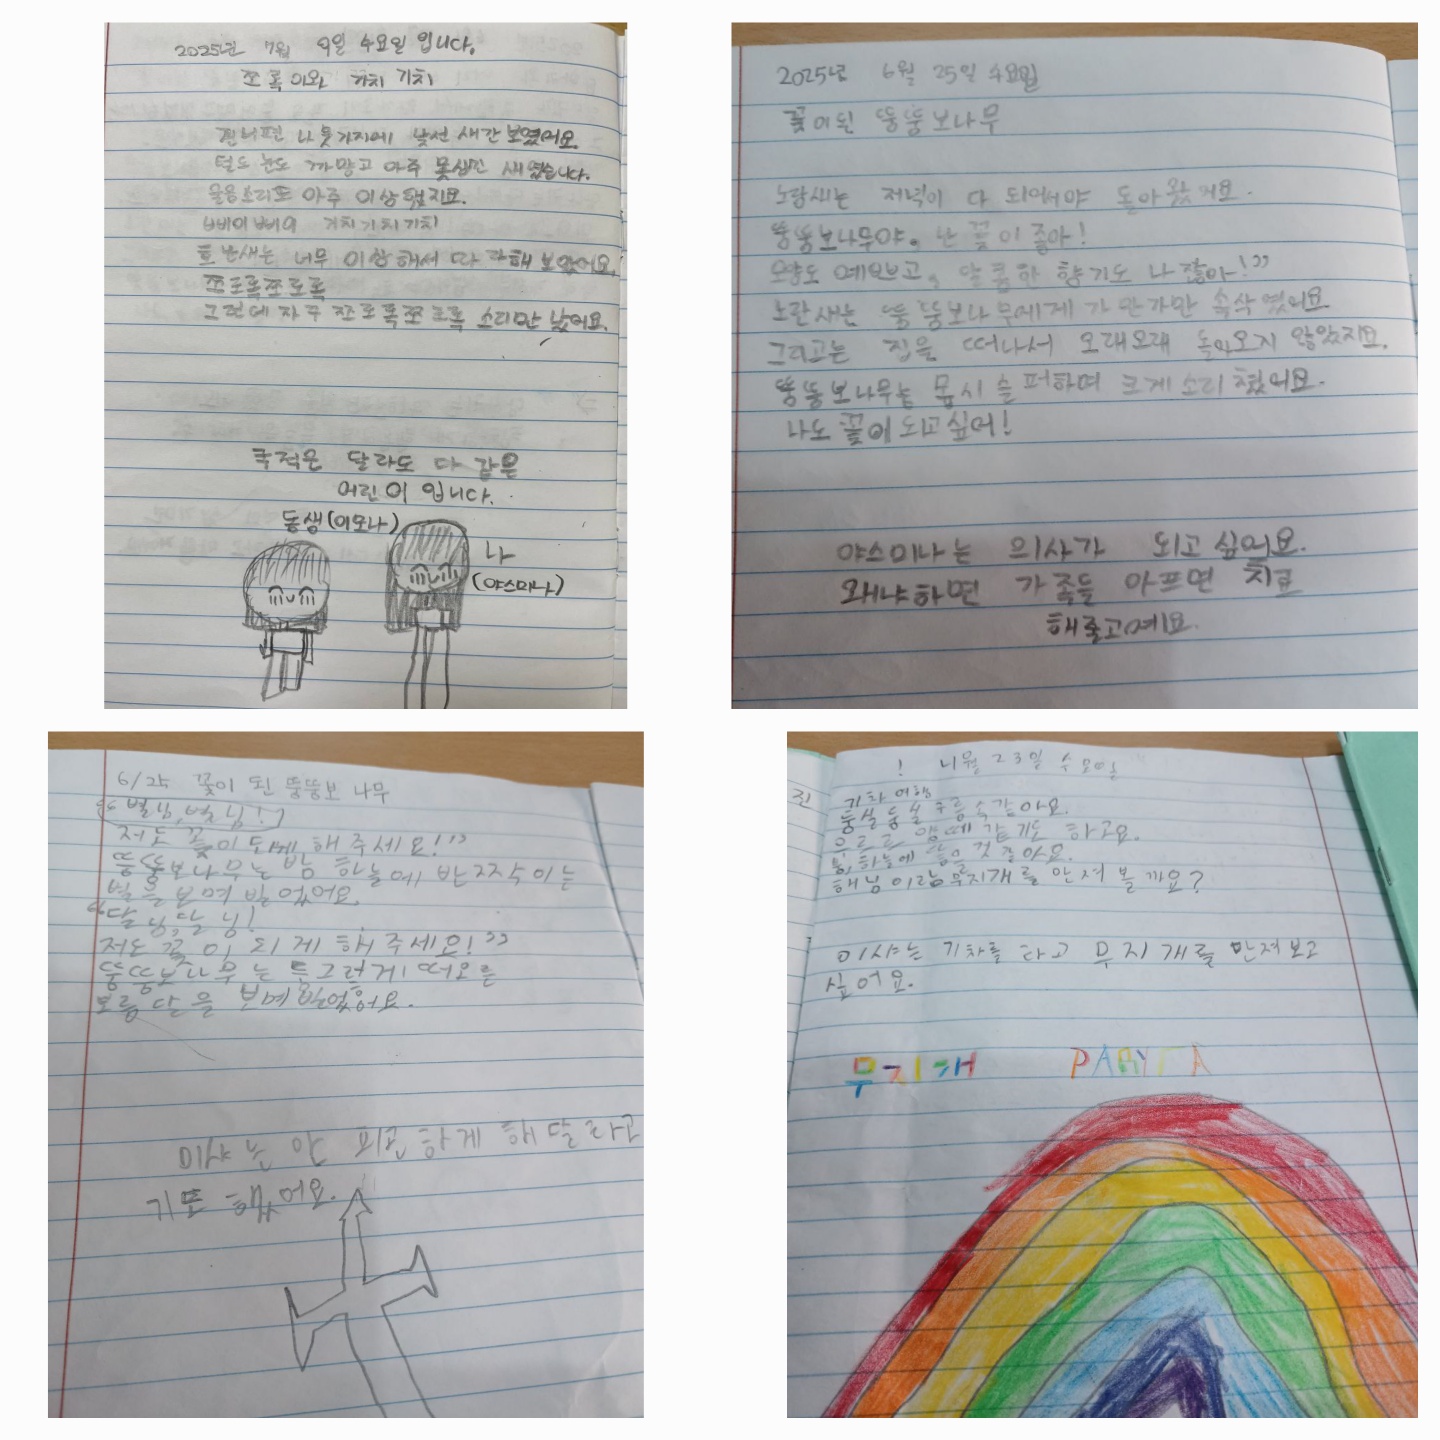 2025년 7월 9일 수요일 입니다.
쪼록이와 거치 거치
건너편 나뭇가지에 낯선 새간 보였어요.
털도 눈도 까맣고 아주 못생긴 새였습니다.
울음소리도 아주 이상했지요.
삐이삐이 거치거치거치
흰눈새는 너무 이상해서 따라해 보았어요.
쪼로록쪼로록
그런데 자꾸 쪼로록쪼로록 소리만 났어요.
국적은 달라도 다 같은
어린이 입니다.
동생(이모나)
나
(야스미나)
2025년 6월 25일 수요일
꽃이된 뚱뚱보나무
노랑새는 저녁이 다 되어서야 돌아왔어요.
뚱뚱보나무야. 난 꽃이 좋아!
모양도 예쁘고, 달콤한 향기도 나잖아!”
노란새는 뚱뚱보나무에게 가만가만 속삭였어요
그리고는 집을 떠나서 오래오래 돌아오지 않았지요.
뚱뚱보나무는 몹시 슬퍼하며 크게 소리쳤어요.
나도 꽃이 되고싶어!
야스미나는 의사가 되고싶어요.
왜냐하면 가족들 아프면 치료
해줄고에요.
6/25 꽃이 된 뚱뚱보 나무
“별님, 별님!
저도 꽃이 되게 해 주세요!”
뚱뚱보나무는 밤 하늘에 반짝이는
별을 보며 빌었어요.
“달님, 달님!
저도 꽃이 되게 해 주세요!”
뚱뚱보나무는 둥그렇게 떠오른
보름달을 보며 빌었어요.
미샤는 건강하게 해달라고
기도 했어요.
진
! 7월 23일 수요일
기차여행
둥실둥실 구름 속 같아요.
우르르 양떼 같기도 하고요.
붕, 하늘에 닿을 것 같아요.
해님이랑 무지개를 만져 볼까요?
미샤는 기차를 타고 무지개를 만져보고
싶어요.
무지개 РАДУГА